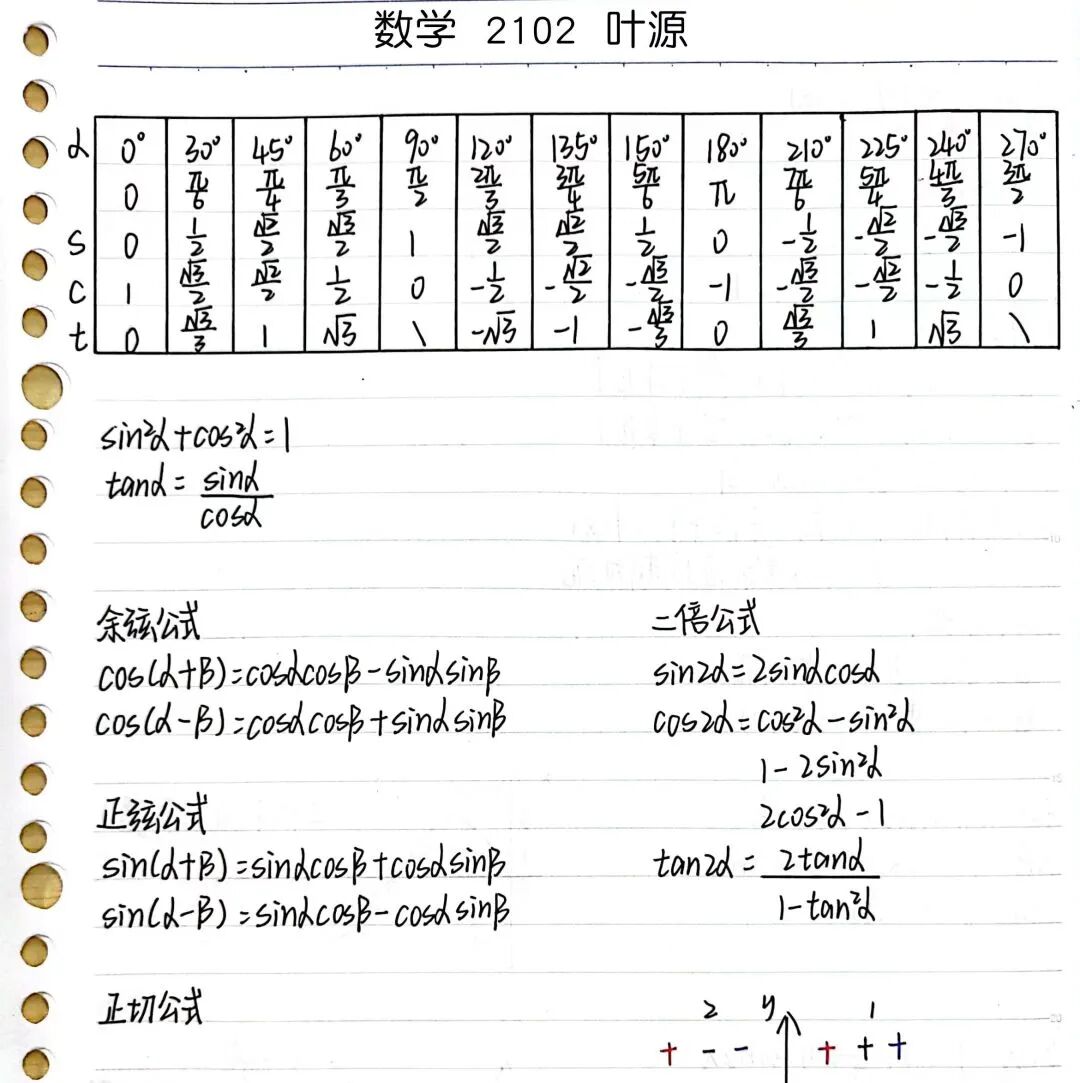 数学 2102 叶源
α 0° 30° 45° 60° 90° 120° 135° 150° 180° 210° 225° 240° 270°
0 π/6 π/4 π/3 π/2 2π/3 3π/4 5π/6 π 7π/6 5π/4 4π/3 3π/2
s 0 1/2 √2/2 √3/2 1 √3/2 √2/2 1/2 0 -1/2 -√2/2 -√3/2 -1
c 1 √3/2 √2/2 1/2 0 -1/2 -√2/2 -√3/2 -1 -√3/2 -√2/2 -1/2 0
t 0 √3/3 1 √3 \ -√3 -1 -√3/3 0 √3/3 1 √3 \
sin²α+cos²α=1
tanα=sinα/cosα
余弦公式
cos(α+β)=cosαcosβ-sinαsinβ
cos(α-β)=cosαcosβ+sinαsinβ
正弦公式
sin(α+β)=sinαcosβ+cosαsinβ
sin(α-β)=sinαcosβ-cosαsinβ
正切公式
二倍公式
sin2α=2sinαcosα
cos2α=cos²α-sin²α
1-2sin²α
2cos²α-1
tan2α=2tanα/1-tan²α
2 y 1
+ - - + + +
10
15
20